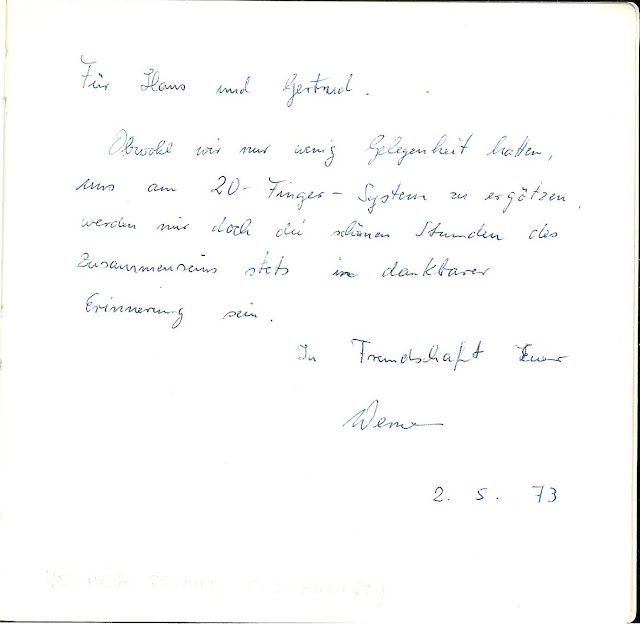 Für Hans und Gertrud.
Obwohl wir nur wenig Gelegenheit hatten,
uns am 20-Finger-System zu ergötzen,
werden mir doch die schönen Stunden des
Zusammenseins stets in dankbarer
Erinnerung sein.
In Freundschaft Euer
Werner
2. 5. 73
WERNER